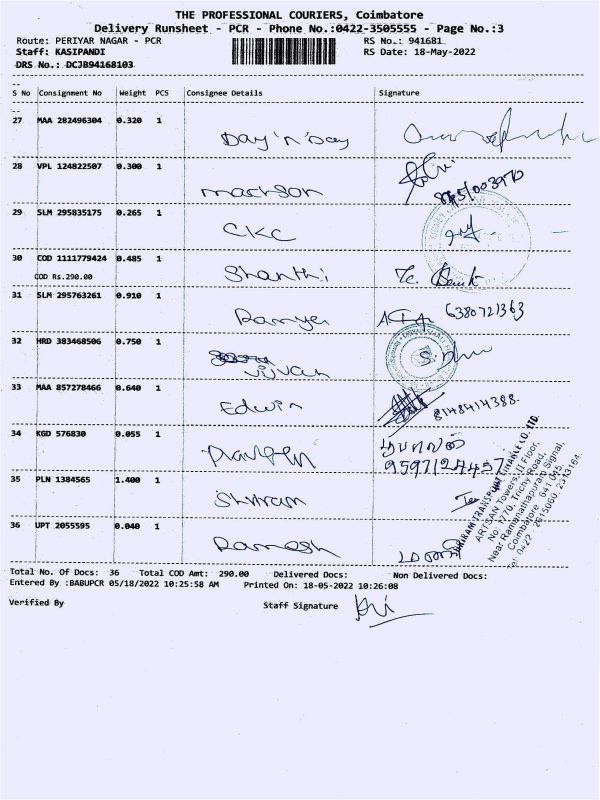 THE PROFESSIONAL COURIERS, Coimbatore
Delivery Runsheet - PCR - Phone No.:0422-3505555 - Page No.:3
Route: PERIYAR NAGAR - PCR RS No.: 941681
Staff: KASIPANDI RS Date: 18-May-2022
DRS No.: DCJB94168103
S No Consignment No Weight PCS Consignee Details Signature
27 MAA 282496304 0.320 1 Day 'n' Day
28 VPL 124822507 0.300 1
29 SLM 295835175 0.265 1 CKC
30 COD 1111779424 0.485 1 Shanthi
COD Rs.290.00
31 SLM 295763261 0.910 1 Ramya 6380721363
32 HRD 383468506 0.750 1
33 MAA 857278466 0.640 1 Edwin 8148414388
34 KGD 576830 0.055 1 Praveen
35 PLN 1384565 1.400 1 Shriram
36 UPT 2055595 0.040 1 Ramesh
SHRIRAM TRANSPORT FINANCE CO. LTD.
ARTISAN Towers, II Floor,
No. 1770, Trichy Road,
Near Ramanathapuram Signal,
Coimbatore - 641 045.
Total No. Of Docs: 36 Total COD Amt: 290.00 Delivered Docs: Non Delivered Docs:
Entered By :BABUPCR 05/18/2022 10:25:58 AM Printed On: 18-05-2022 10:26:08
Verified By Staff Signature